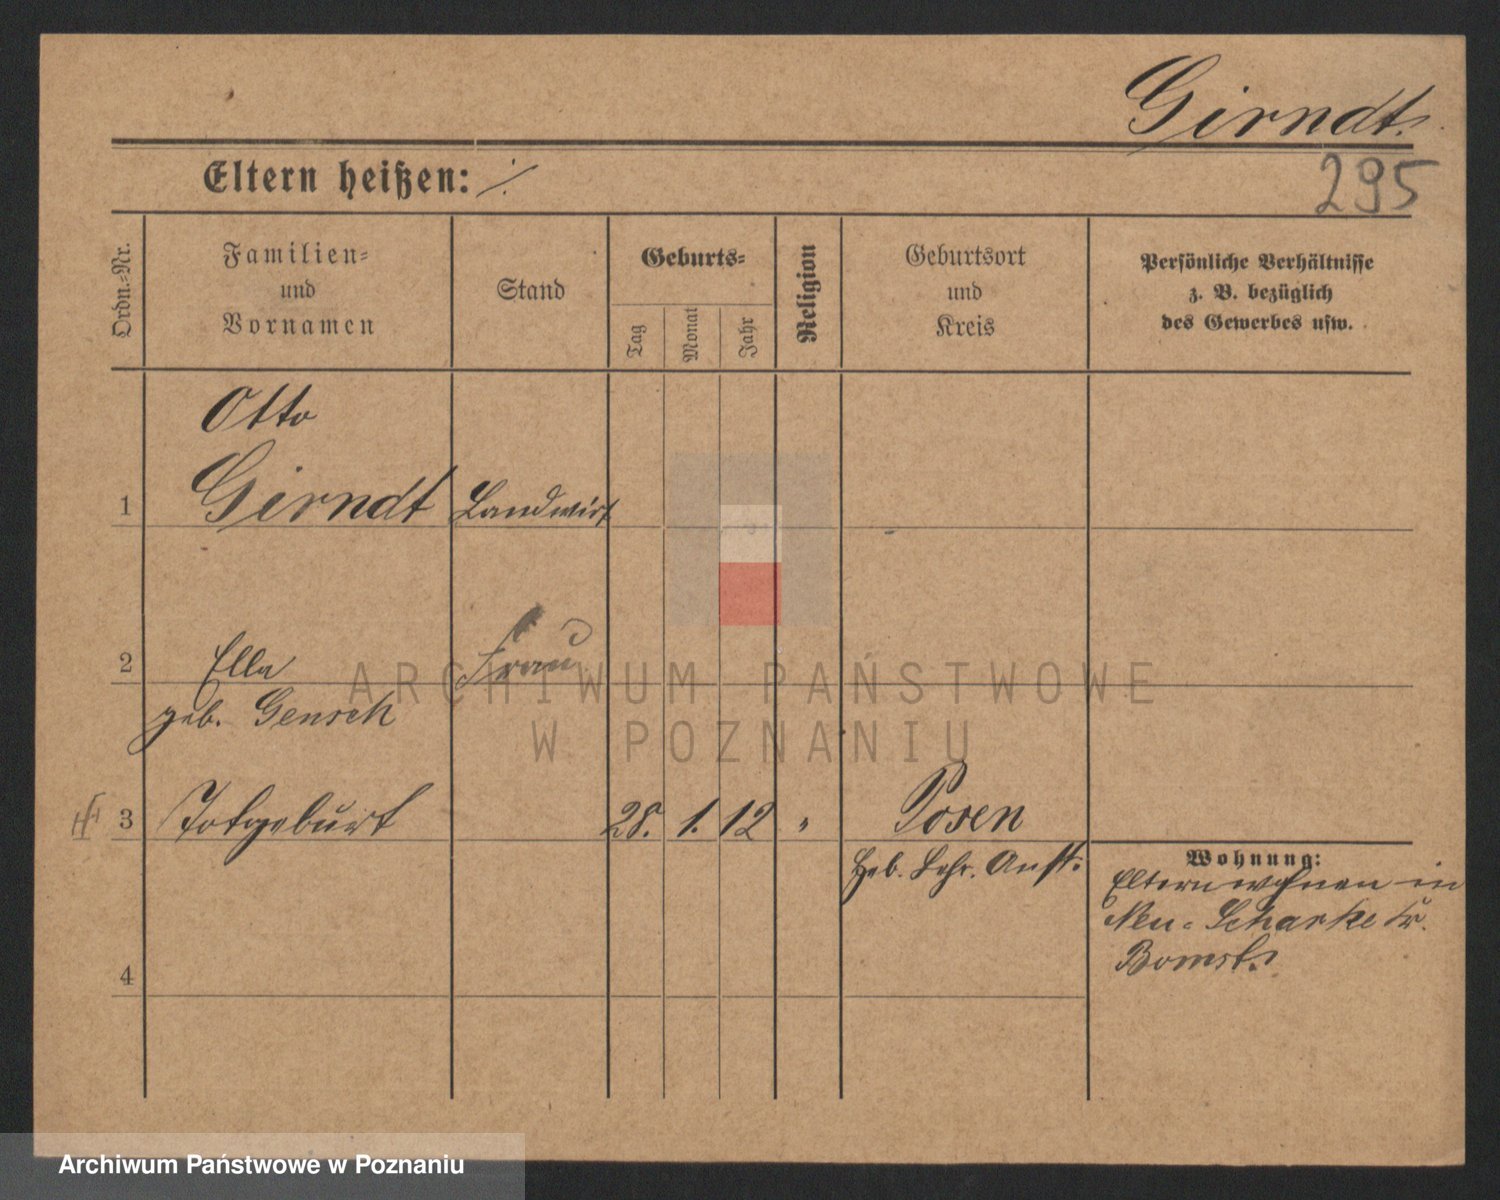 Girndt.
295
Eltern heißen: ·/·
Ordn.-Nr.
Familien-
und
Vornamen
Stand
Geburts-
Tag
Monat
Jahr
Religion
Geburtsort
und
Kreis
Persönliche Verhältnisse
z. B. bezüglich
des Gewerbes usw.
Otto
1 Girndt Landwirt
2 Ella Frau
geb. Gensch
3 Totgeburt 28. 1. 12 " Posen
Heb. Lehr. Anst.
Wohnung:
Eltern wohnen in
Neu-Scharke Kr.
Bomst.
4
ARCHIWUM PAŃSTWOWE
W POZNANIU
Archiwum Państwowe w Poznaniu